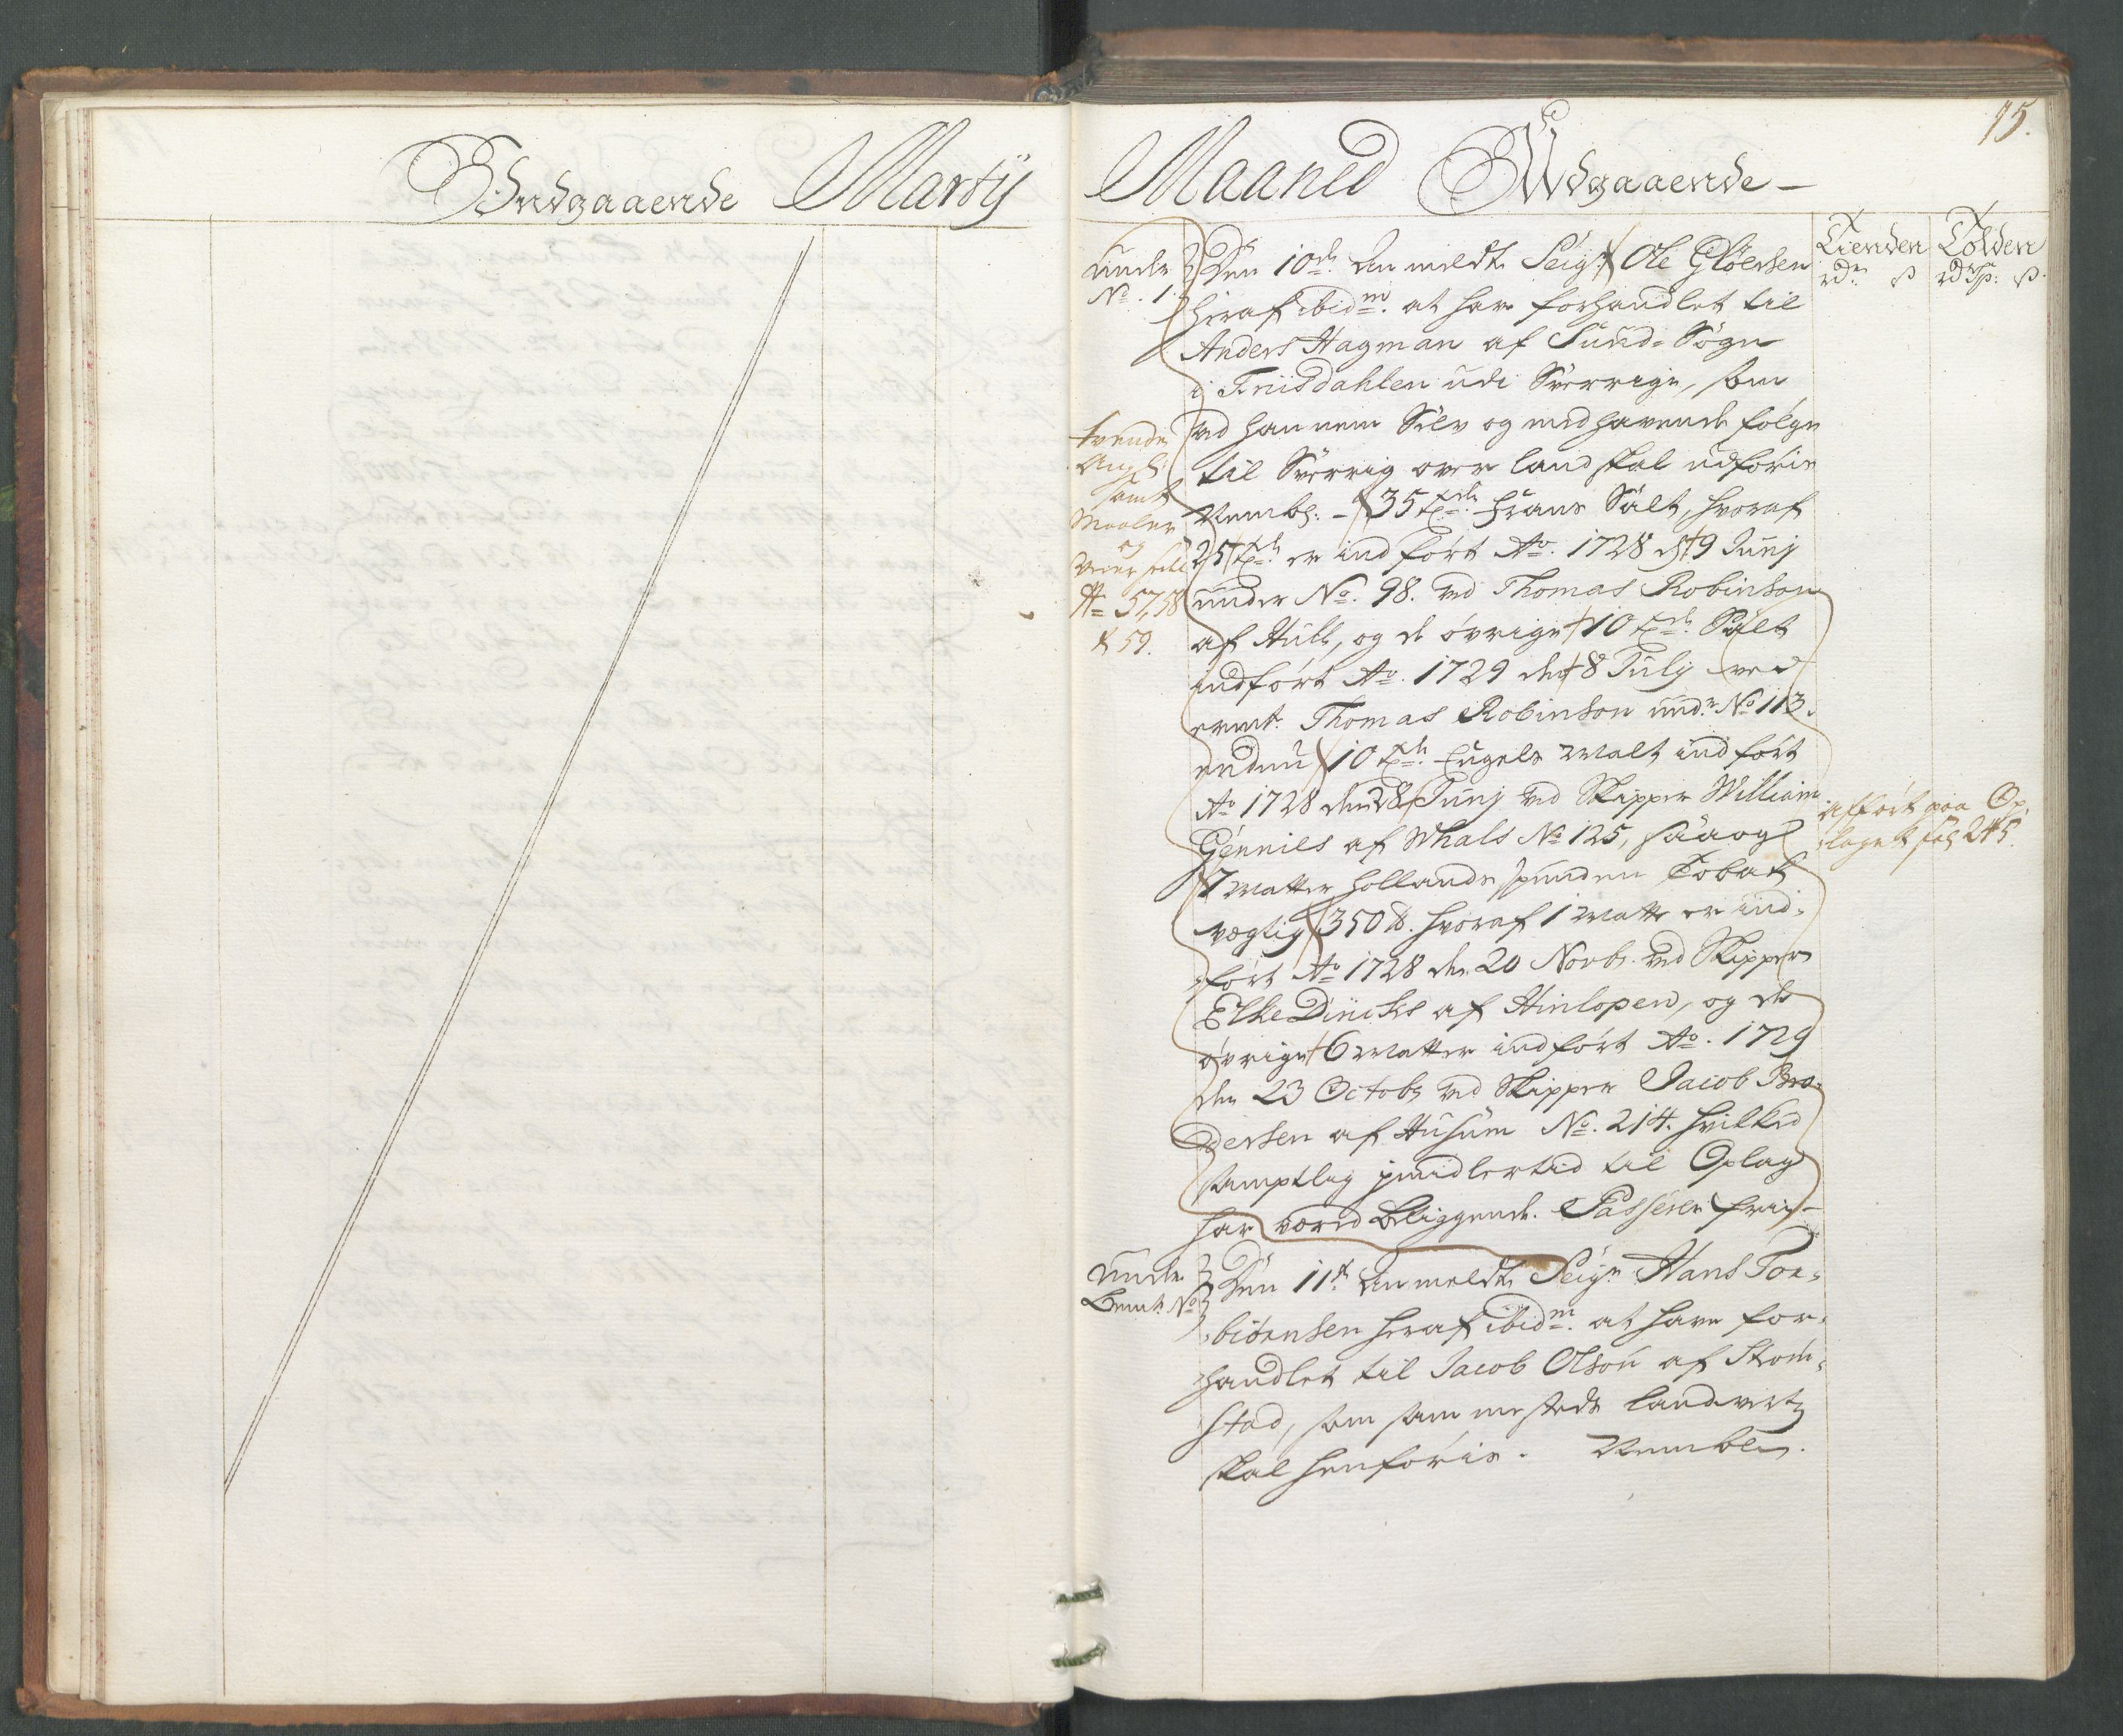 Indgaaende Martij
Maaned Udgaaende
15.
Tienden Tolden
rdr ß rdr sp: ß
under
No. 1.
Den 10de Anmeldte Seigr Ole Gløersen
heraf ibidm. at have forhandlet til
Anders Hagman af Sund-Sögn
i Friisdahlen udi Sverrige, som
ved hannem Selv og medhavende følge
til Sverrig over land skal udføris
Nembl: 35 tdr. frans Salt, hvoraf
25 tdr. er indført Ao. 1728 d 19 Junij
under No. 98. ved Thomas Robinson
af Hull, og de øvrige 10 tdr. Salt
indført Ao. 1729 den 8 July ved
ermt. Thomas Robinson undr No 113.
endnu 10 tdr. Engels Malt indført
Ao 1728 den 28 Junij ved Skipper William
Gennies af Whals No 125, saaog
7 Matter hollands spunden Tobak
vegtig 350 lb. hvoraf 1 Matte er ind-
ført Ao 1728 den 20 Novbr. ved Skipper
Elke Dincks af Hinlopen, og de
øvrige 6 Matter indført Ao. 1729
den 23 Octobr ved Skipper Jacob Bro-
dersen af Husum No. 214. hvilked
samptlig jmidlertid til Oplag
har væred beliggende. Passerer frie
tvende
Ang:
samt
Maaler
og
Veier sedl
No 57, 58
& 59.
afført paa Op-
laget fol 245.
under
bemt. No
Den 11te Anmeldte Seigr Hans Tor-
biørnsen heraf ibidm. at have for-
handlet til Jacob Olson af Strøm-
stad, som sammesteds landverts
skal henføris. Nembl.